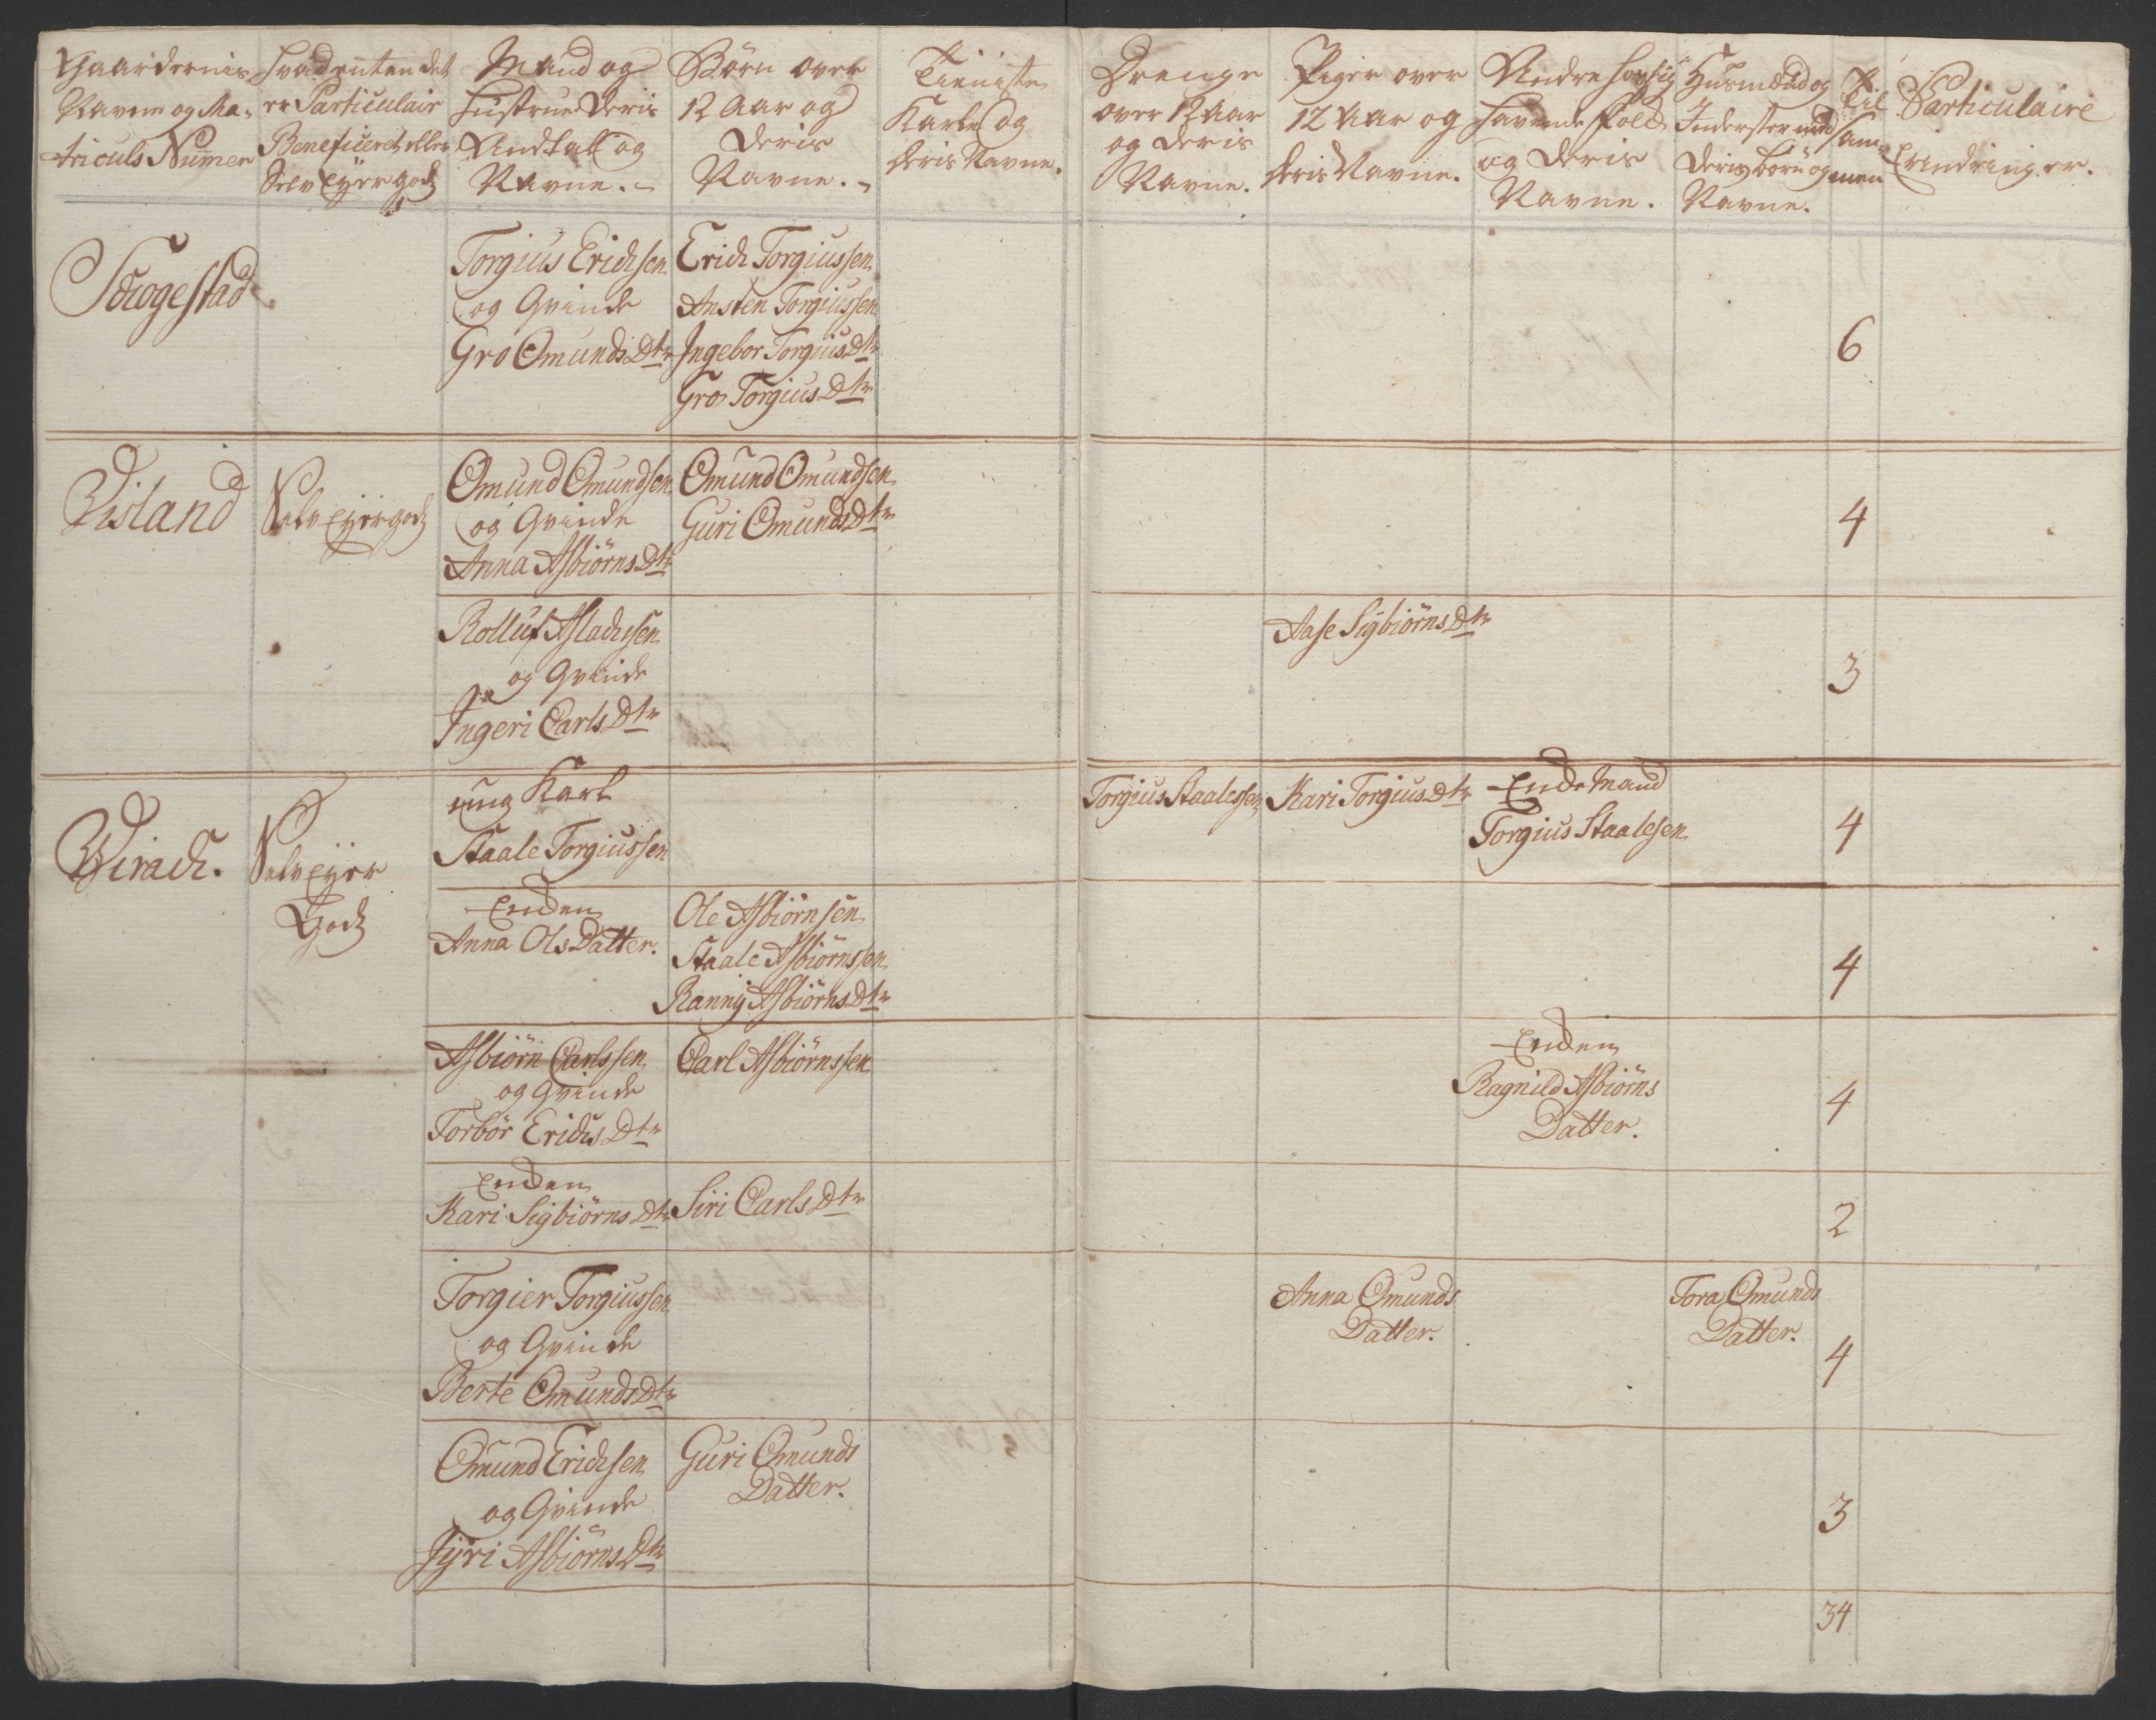 Gaardernis
Navne og Ma-
triculs Numer
Hvad enten det
er Particulair
Beneficeret eller
Selv Eyer godz
Mand og
Hustrue Deris
Andtall og
Navne.
Börn over
12 Aar og
Deris
Navne.
Tieniste
Karle og
deris Navne.
Drenge
over 12 Aar
og deris
Navne.
Piger over
12 Aar og
deris Navne.
Andre hos sig
havende Folck
og Deris
Navne.
Husmænd og
Inderster med
Deris börn og
Navne.
Til
Sam-
men
Particulaire
Erindringer.
Skogestad
Torgius Erichsen
og Qvinde
Gro Omunds Dtr
Erich Torgiussen
Ansten Torgiussen
Ingebor Torgius Dtr
Gro Torgius Dtr
6
Visland
Selv Eyer godz
Omund Omundsen
og Qvinde
Anna Asbiörns Dtr
Omund Omundsen
Guri Omunds Dtr
4
Rolluf Aslachsen
og Qvinde
Ingeri Carls Dtr
Aase Sigbiörns Dtr
3
Virach.
Selv Eyer
Godz
ung Karl
Staale Torgiussen
Torgius Staalesen
Kari Torgius Dtr
Encke Mand
Torgius Staalesen
4
Encken
Anna Ols Datter.
Ole Asbiörnsen
Staale Asbiörnssen
Ranny Asbiörns Dtr
4
Asbiörn Carlssen
og Qvinde
Torbör Erichs Dtr
Carl Asbiörnssen
Encken
Ragnild Asbiörns
Datter.
4
Encken
Kari Sigbiörns Dtr
Siri Carls Dtr
2
Torgier Torgiussen
og Qvinde
Berte Omunds Dtr
Anna Omunds
Datter.
Tora Omunds
Datter.
4
Omund Erichsen
og Qvinde
Jyri Asbiörns Dtr
Guri Omunds
Datter.
3
34